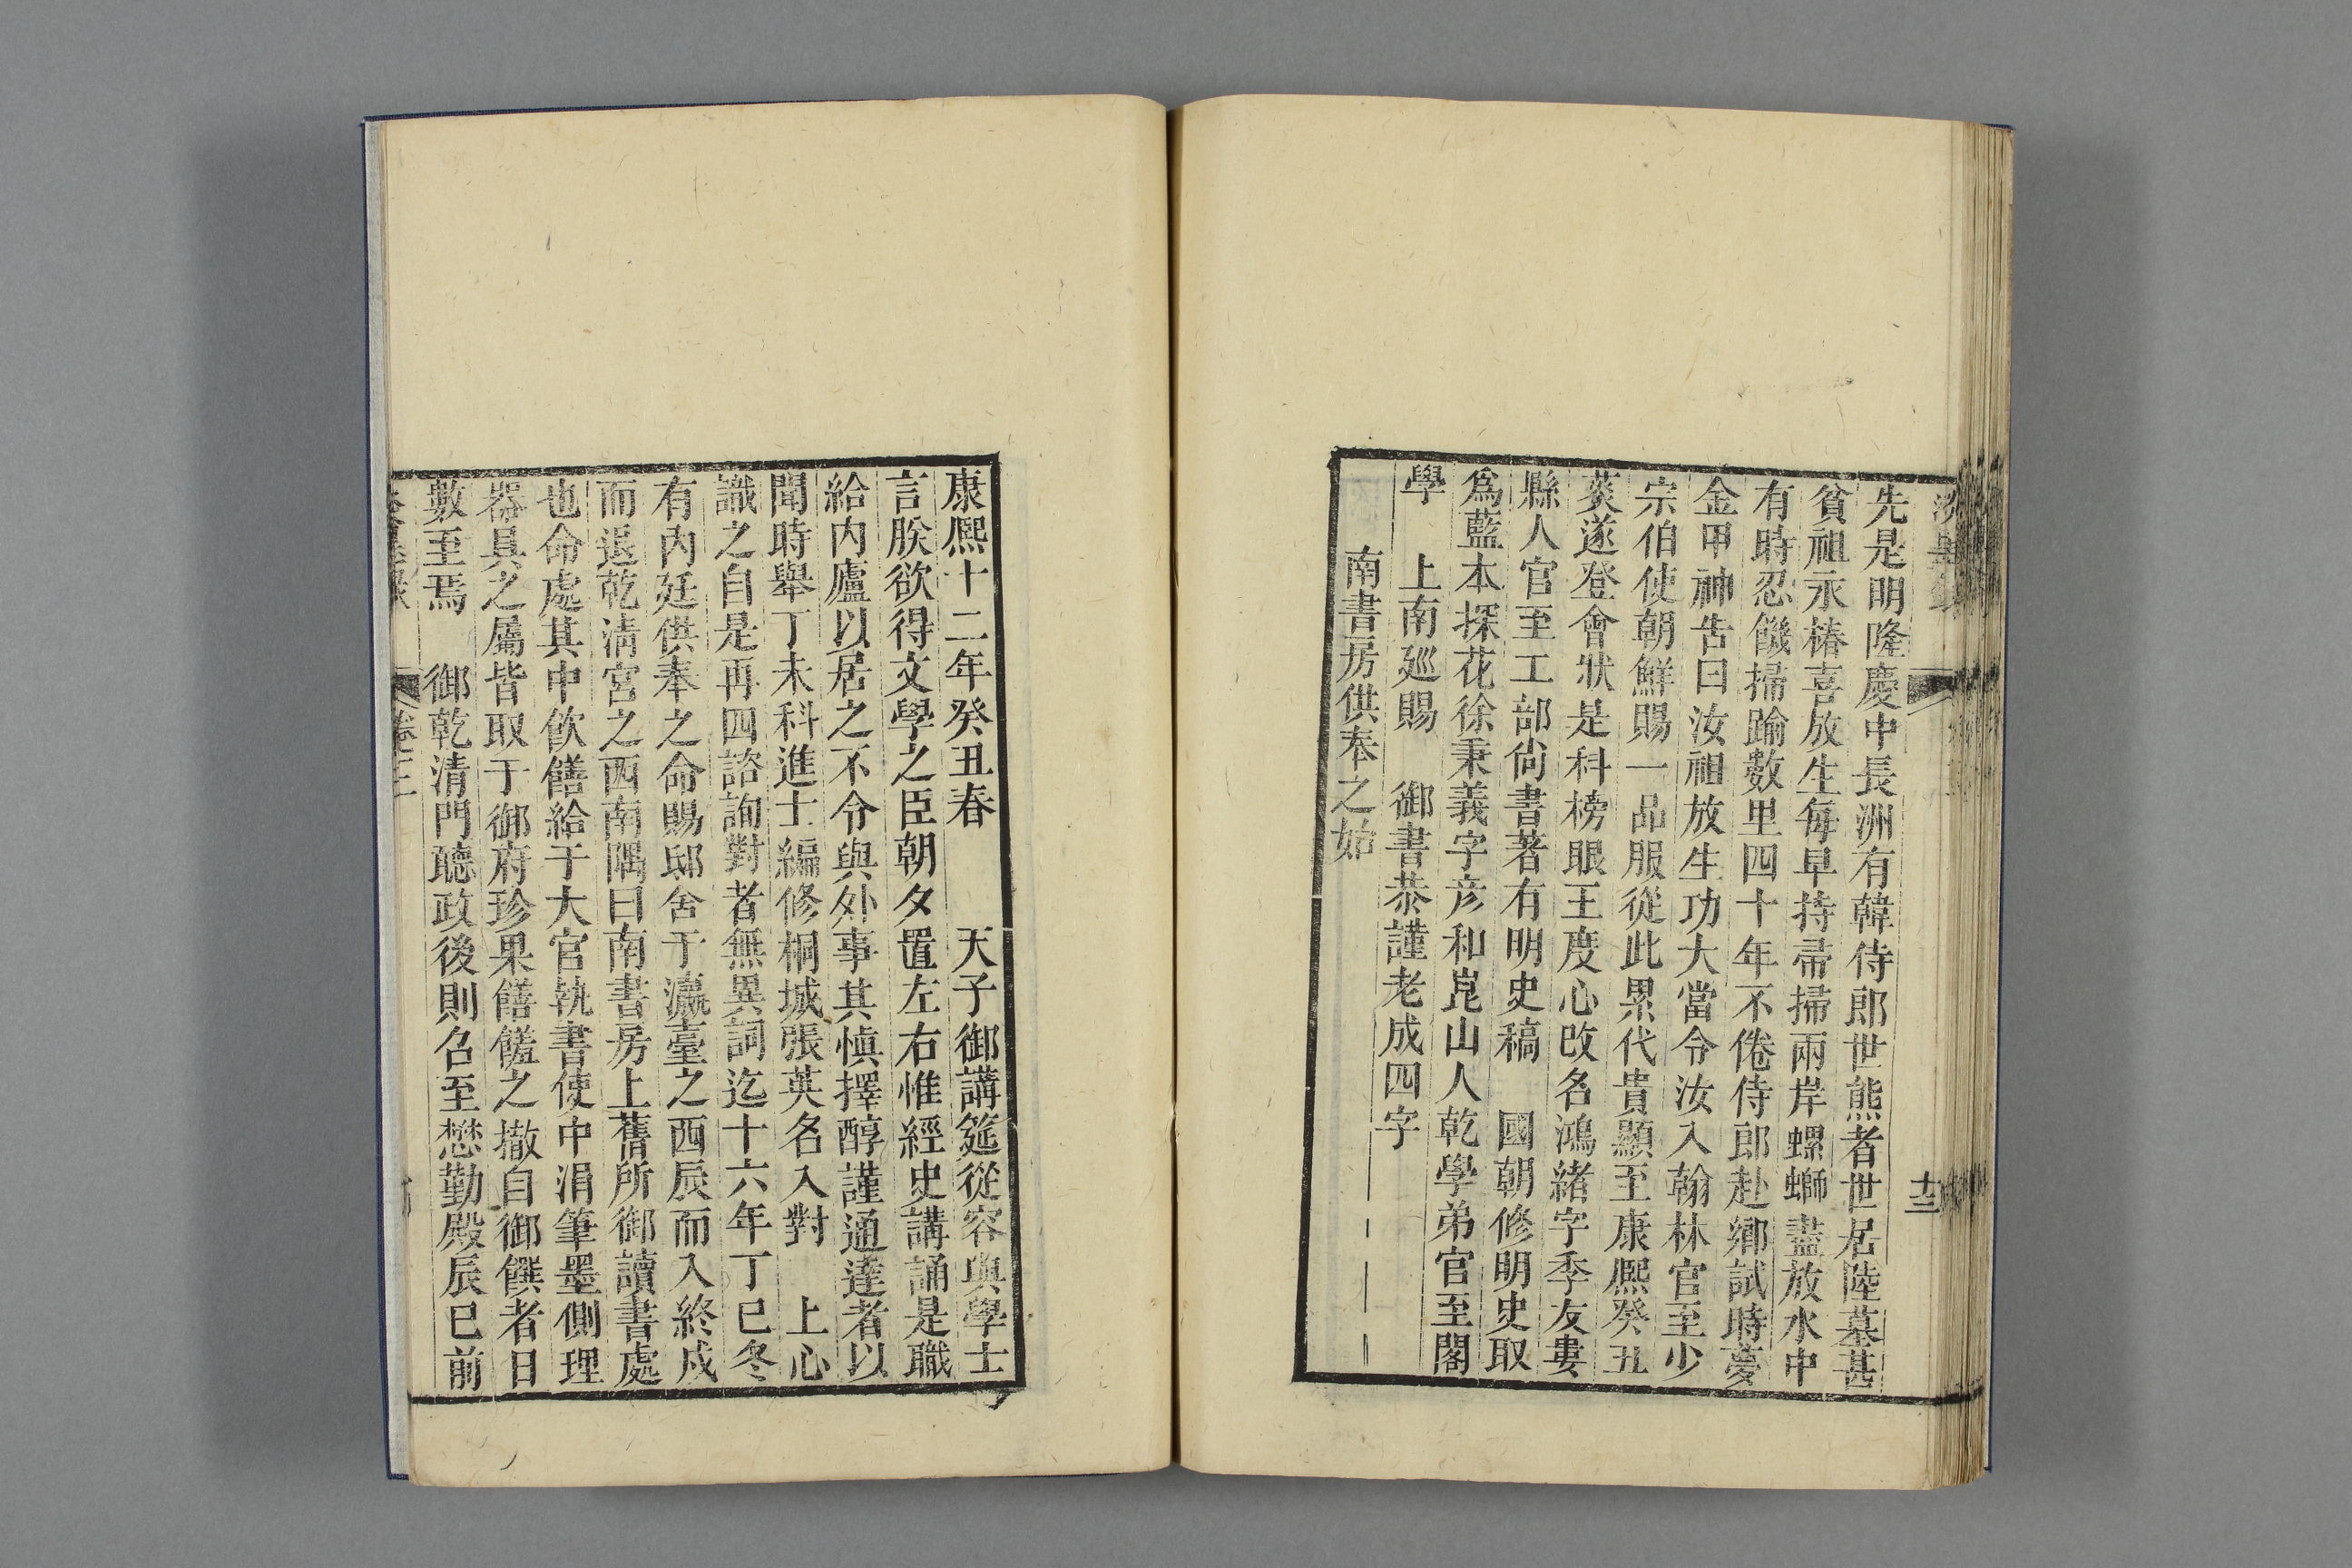 先是明隆慶中長洲有韓侍郎世熊者世居陸墓甚
貧祖永椿喜放生每早持帚掃兩岸螺螄盡放水中
有時忍饑掃踰數里四十年不倦侍郎赴鄉試時夢
金甲神告曰汝祖放生功大當令汝入翰林官至少
宗伯使朝鮮賜一品服從此累代貴顯至康熙癸丑
菼遂登會狀是科榜眼王度心改名鴻緒字季友婁
縣人官至工部尚書著有明史稿 國朝修明史取
爲藍本探花徐秉義字彦和崑山人乾學弟官至閣
學 上南廵賜 御書恭謹老成四字
南書房供奉之始
康熙十二年癸丑春 天子御講筵從容與學士
言朕欲得文學之臣朝夕置左右惟經史講誦是職
給内廬以居之不令與外事其慎擇醇謹通達者以
聞時舉丁未科進士編修桐城張英名入對 上心
識之自是再四諮詢對者無異詞迄十六年丁巳冬
有内廷供奉之命賜邸舍于瀛臺之西辰而入終戌
而退乾清宮之西南隅曰南書房上舊所御讀書處
也命處其中飲饍給于大官執書使中涓筆墨側理
器具之屬皆取于御府珍果饍饈之撤自御饌者日
數至焉 御乾清門聽政後則召至懋勤殿辰巳前
卷三